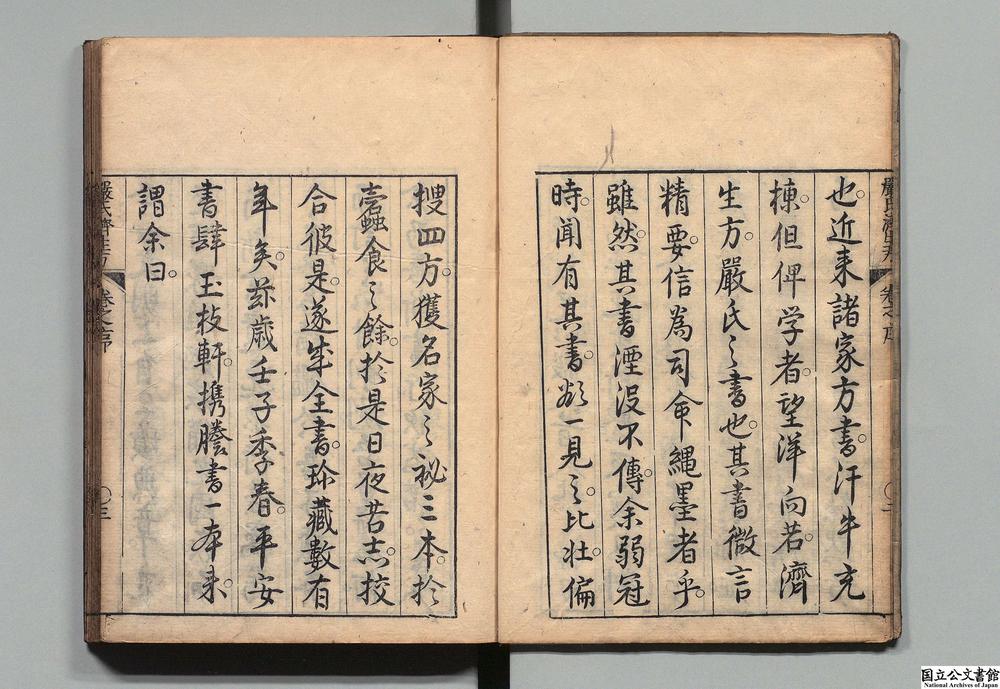 也近来諸家方書汗牛充
棟但俾学者望洋向若濟
生方嚴氏之書也其書微言
精要信為司命縄墨者乎
雖然其書湮没不傳余弱冠
時聞有其書欲一見之比壮偏
搜四方獲名家之祕三本於
蠧蟲食之餘於是日夜苦志挍
合彼是遂成全書珎藏數有
年矣茲歳壬子季春平安
書肆玉枝軒携謄書一本来
謂余曰
嚴氏濟生方 卷之序 〇二
嚴氏濟生方 卷之序 〇三
国立公文書館
National Archives of Japan